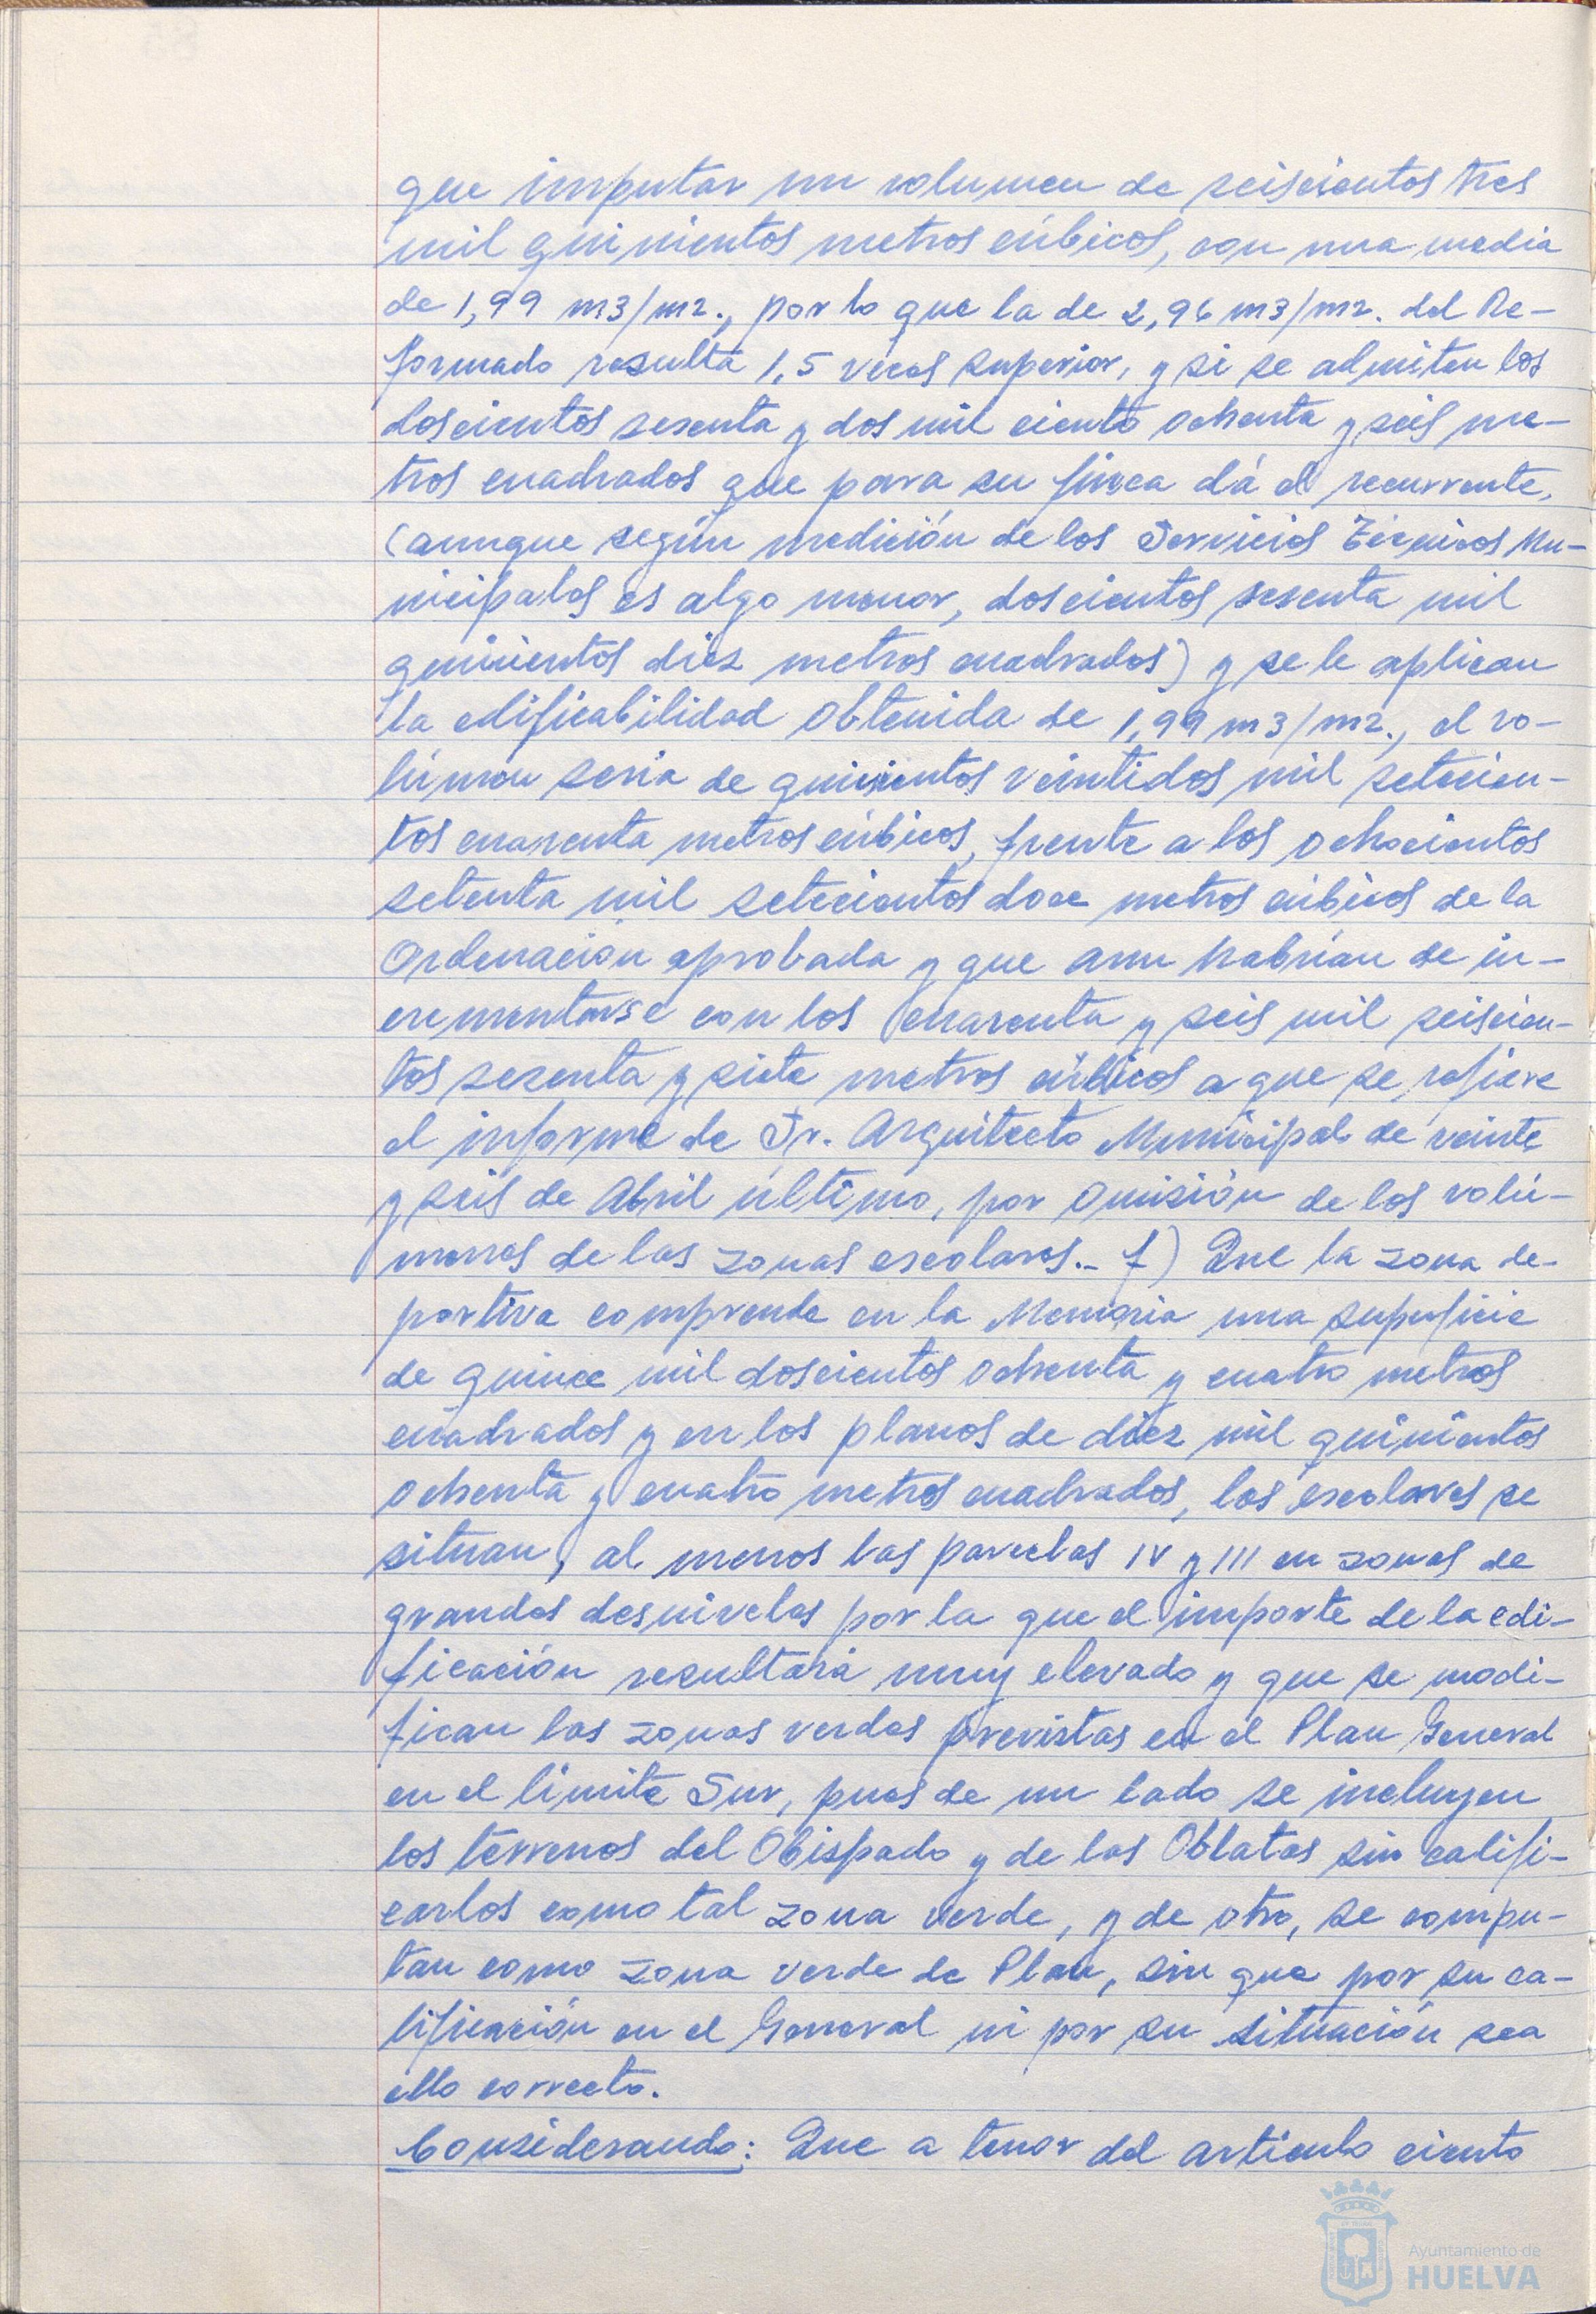 que imputar un volumen de seiscientos tres
mil quinientos metros cúbicos, con una media
de 1,99 m3/m2., por lo que la de 2,96 m3/m2. del Re-
formado resulta 1,5 veces superior, y si se admiten los
doscientos sesenta y dos mil ciento ochenta y seis me-
tros cuadrados que para su finca dá el recurrente,
(aunque según medición de los Servicios Técnicos Mu-
nicipales es algo menor, doscientos sesenta mil
quinientos diez metros cuadrados) y se le aplican
la edificabilidad obtenida de 1,99 m3/m2., el vo-
lúmen seria de quinientos veintidos mil setecien-
tos cuarenta metros cúbicos, frente a los ochocientos
setenta mil setecientos doce metros cúbicos de la
Ordenación aprobada y que aun habrían de in-
crementarse con los cuarenta y seis mil seiscien-
tos sesenta y siete metros cúbicos a que se refiere
el informe de Sr. Arquitecto Municipal de veinte
y seis de Abril último, por omisión de los volú-
menes de las zonas escolares.- f) Que la zona de-
portiva comprende en la Memoria una superficie
de quince mil doscientos ochenta y cuatro metros
cuadrados y en los planos de diez mil quinientos
ochenta y cuatro metros cuadrados, las escolares se
situan, al menos las parcelas IV y III en zonas de
grandes desniveles por la que el importe de la edi-
ficación resultará muy elevado y que se modi-
fican las zonas verdes previstas en el Plan General
en el limite Sur, pues de un lado se incluyen
los terrenos del Obispado y de las Oblatas sin califi-
carlos como tal zona verde, y de otro, se compu-
tan como zona verde de Plan, sin que por su ca-
lificación en el General ni por su situación sea
ello correcto.
Considerando: Que a tenor del artículo ciento
Ayuntamiento de
HUELVA